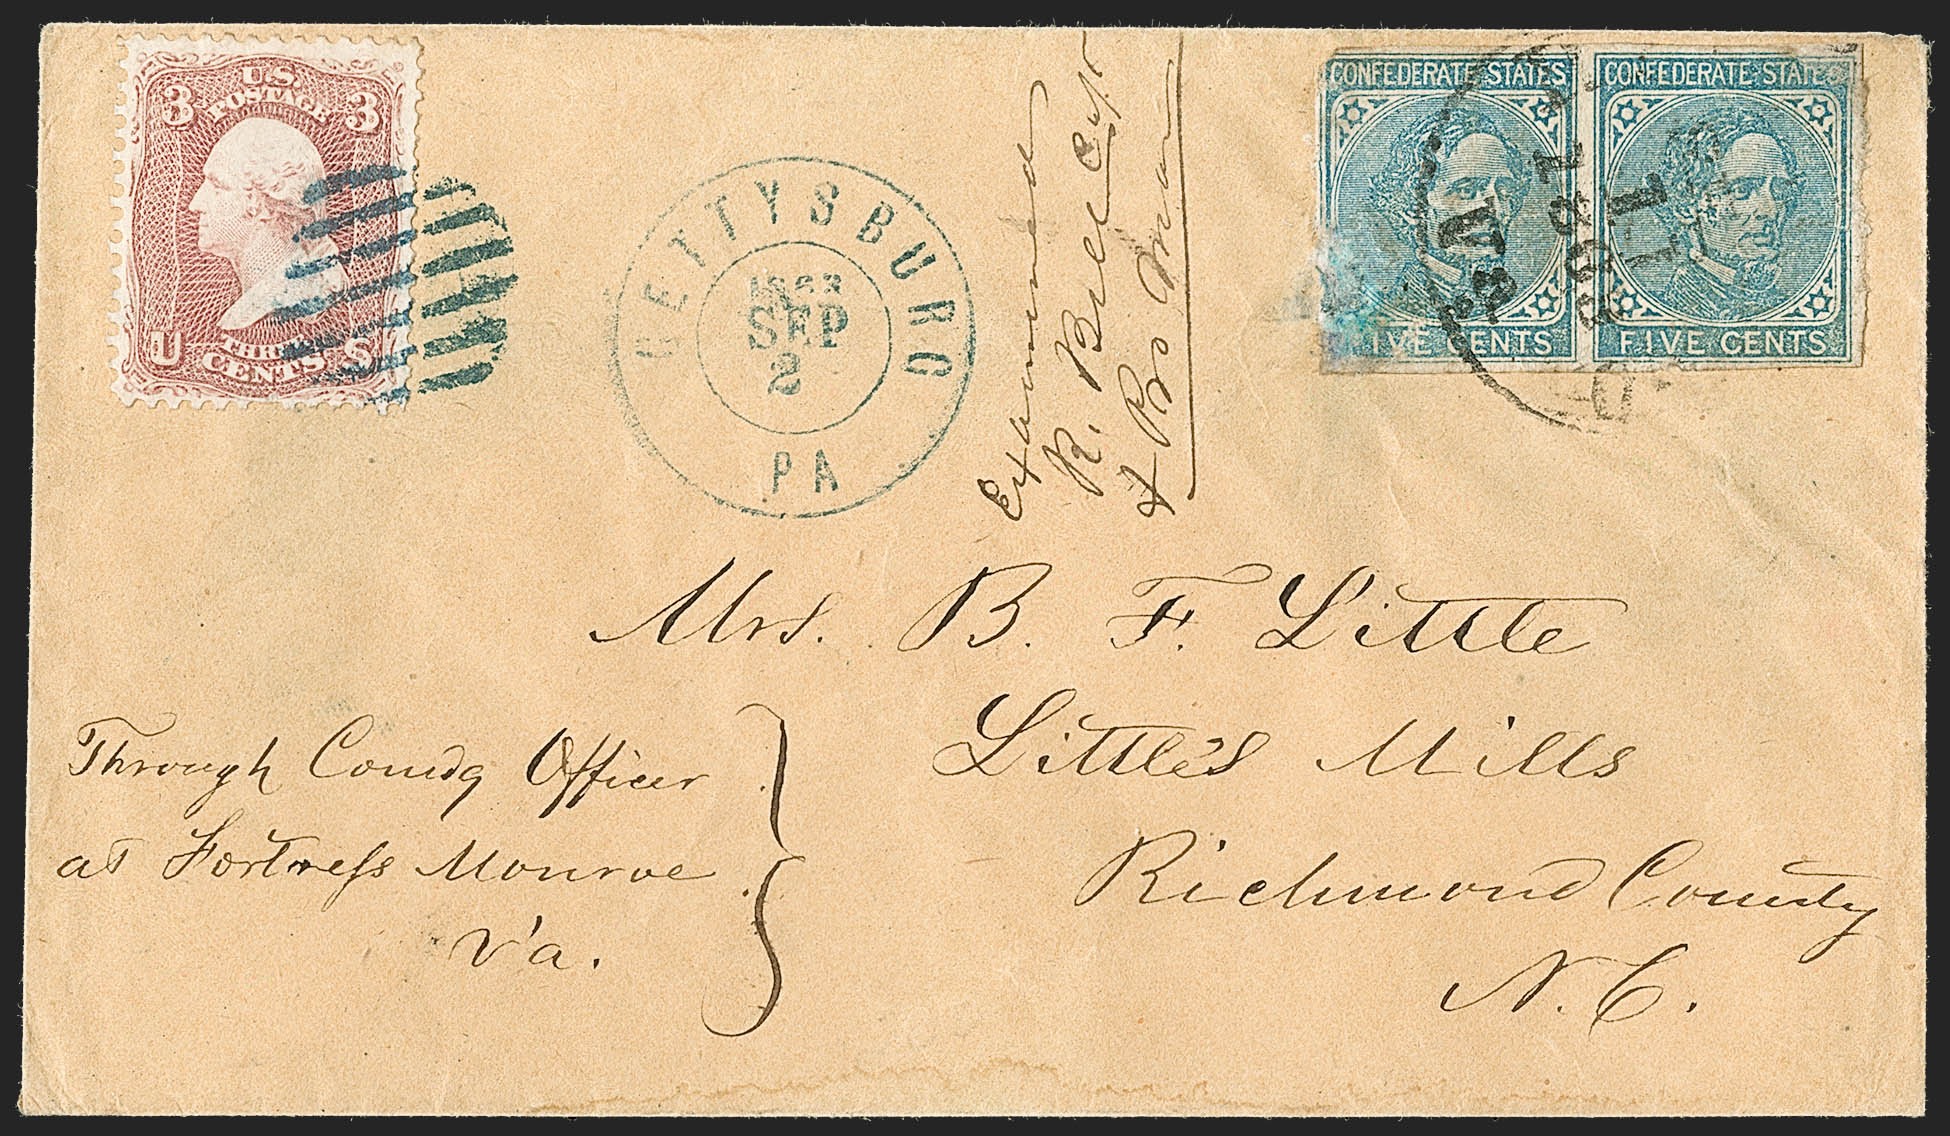 U.S.
POSTAGE
3 3
U S
THREE
CENTS
GETTYSBURG
1863
SEP
2
PA
Examined
R. Bree Capt
& Pro Mar
CONFEDERATE STATES
FIVE CENTS
CONFEDERATE STATES
FIVE CENTS
VA
Mrs. B. F. Little
Little's Mills
Richmond County
N. C.
Through Comdg Officer
at Fortress Monroe
Va.